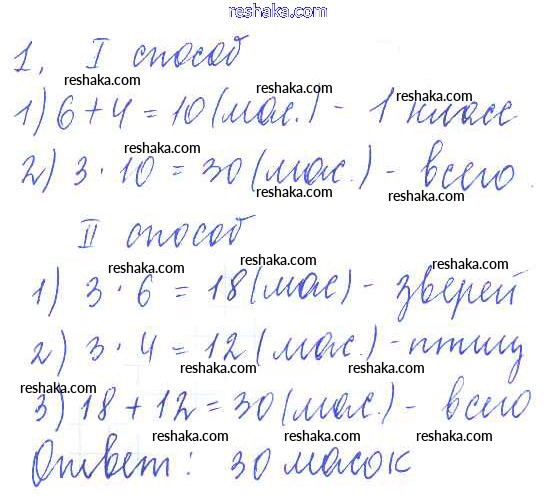 reshaka.com
1. I способ
reshaka.com reshaka.com
1) 6 + 4 = 10 (мас.) - 1 класс
reshaka.com reshaka.com
2) 3 · 10 = 30 (мас.) - всего
reshaka.com reshaka.com
II способ
reshaka.com reshaka.com
1) 3 · 6 = 18 (мас) - зверей
reshaka.com reshaka.com
2) 3 · 4 = 12 (мас.) - птиц
reshaka.com reshaka.com
3) 18 + 12 = 30 (мас.) - всего
reshaka.com reshaka.com
Ответ: 30 масок
reshaka.com